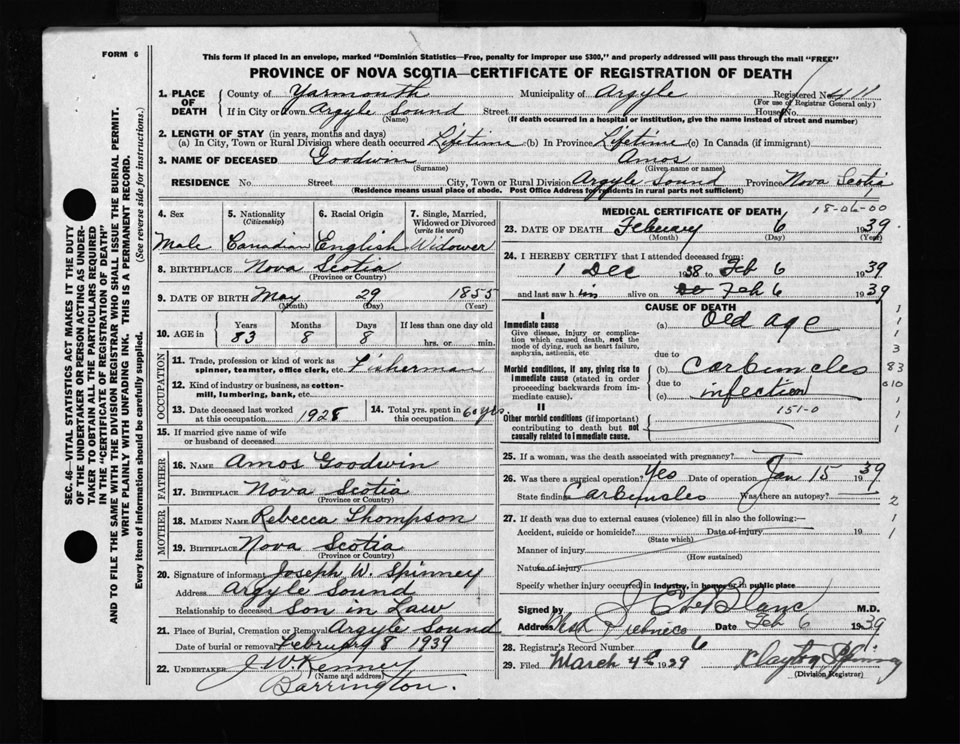 FORM 6
This form if placed in an envelope, marked "Dominion Statistics—Free, penalty for improper use $300," and properly addressed will pass through the mail "FREE"
PROVINCE OF NOVA SCOTIA—CERTIFICATE OF REGISTRATION OF DEATH
1. PLACE OF DEATH
County of Yarmouth Municipality of Argyle Registered No. 411
(For use of Registrar General only)
If in City or Town Argyle Sound Street House No.
(Name) (If death occurred in a hospital or institution, give the name instead of street and number)
2. LENGTH OF STAY (in years, months and days)
(a) In City, Town or Rural Division where death occurred Lifetime (b) In Province Lifetime (c) In Canada (if immigrant)
3. NAME OF DECEASED Goodwin Amos
(Surname) (Given name or names)
RESIDENCE No. Street City, Town or Rural Division Argyle Sound Province Nova Scotia
(Residence means usual place of abode. Post Office Address for residents in rural parts not sufficient)
SEC. 46—VITAL STATISTICS ACT MAKES IT THE DUTY
OF THE UNDERTAKER OR PERSON ACTING AS UNDER-
TAKER TO OBTAIN ALL THE PARTICULARS REQUIRED
IN THE "CERTIFICATE OF REGISTRATION OF DEATH"
AND TO FILE THE SAME WITH THE DIVISION REGISTRAR WHO SHALL ISSUE THE BURIAL PERMIT.
WRITE PLAINLY WITH UNFADING INK. THIS IS A PERMANENT RECORD.
Every item of information should be carefully supplied. (See reverse side for instructions.)
4. Sex Male
5. Nationality (Citizenship) Canadian
6. Racial Origin English
7. Single, Married, Widowed or Divorced (write the word) Widower
8. BIRTHPLACE Nova Scotia
(Province or Country)
9. DATE OF BIRTH May 29 1855
(Month) (Day) (Year)
10. AGE in Years 83 Months 8 Days 8 If less than one day old hrs. or min.
OCCUPATION
11. Trade, profession or kind of work as spinner, teamster, office clerk, etc. Fisherman
12. Kind of industry or business, as cotton-mill, lumbering, bank, etc.
13. Date deceased last worked at this occupation 1928
14. Total yrs. spent in this occupation 60 yrs
15. If married give name of wife or husband of deceased
FATHER
16. NAME Amos Goodwin
17. BIRTHPLACE Nova Scotia
(Province or Country)
MOTHER
18. MAIDEN NAME Rebecca Thompson
19. BIRTHPLACE Nova Scotia
(Province or Country)
20. Signature of informant Joseph W. Spinney
Address Argyle Sound
Relationship to deceased Son in Law
21. Place of Burial, Cremation or Removal Argyle Sound
Date of burial or removal February 8 1939
22. UNDERTAKER J W Kenney
(Name and address)
Barrington.
MEDICAL CERTIFICATE OF DEATH 18-06-00
23. DATE OF DEATH February 6 1939
(Month) (Day) (Year)
24. I HEREBY CERTIFY that I attended deceased from:
1 Dec 1938 to Feb 6 1939
and last saw h im alive on Feb 6 1939
CAUSE OF DEATH
I
Immediate cause (a) Old age
Give disease, injury or complication which caused death, not the mode of dying, such as heart failure, asphyxia, asthenia, etc
due to
Morbid conditions, if any, giving rise to immediate cause (stated in order proceeding backwards from immediate cause).
(b) Carbuncles
due to
(c) infection
II
151-0
Other morbid conditions (if important) contributing to death but not causally related to immediate cause.
1
1
3
83
010
1
1
1
25. If a woman, was the death associated with pregnancy?
26. Was there a surgical operation? Yes Date of operation Jan 15 1939
State findings Carbuncles Was there an autopsy?
2
1
1
27. If death was due to external causes (violence) fill in also the following:—
Accident, suicide or homicide? Date of injury 19
(State which)
Manner of injury
(How sustained)
Nature of injury
Specify whether injury occurred in industry, in home or in public place
Signed by J E LeBlanc M.D.
Address West Pubnico Date Feb 6 1939
28. Registrar's Record Number 6
29. Filed March 4th 1939 Clayton Spinney
(Division Registrar)